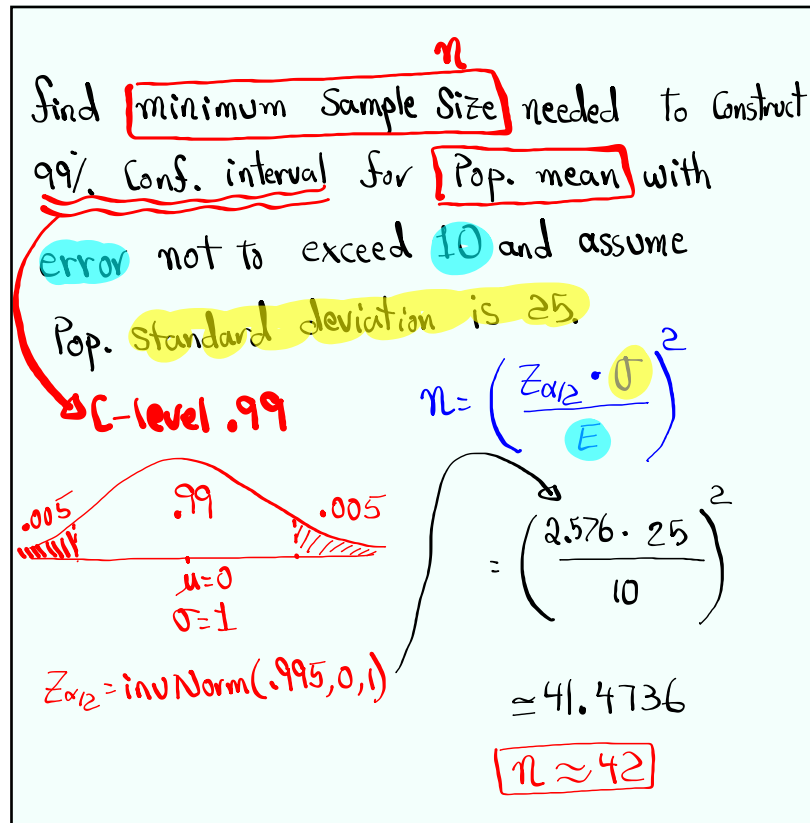 n
find minimum Sample Size needed to Construct
99% Conf. interval for Pop. mean with
error not to exceed 10 and assume
Pop. standard deviation is 25.
C-level .99
n = (Zα/2 · σ / E)²
.005 .99 .005
μ=0
σ=1
= (2.576 · 25 / 10)²
Zα/2 = invNorm(.995,0,1)
≃ 41.4736
n ≈ 42